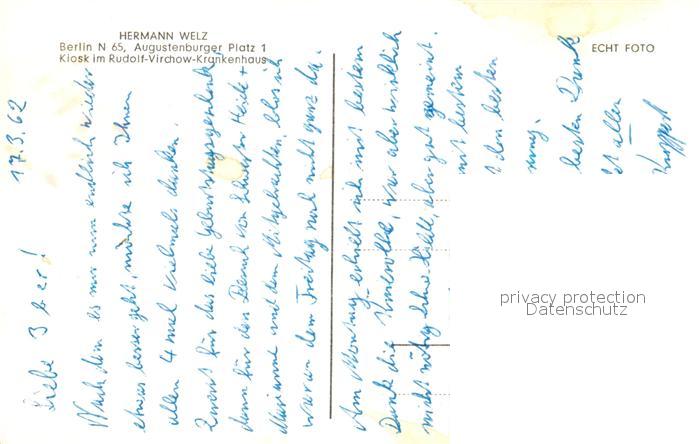 HERMANN WELZ
Berlin N 65, Augustenburger Platz 1
Kiosk im Rudolf-Virchow-Krankenhaus
ECHT FOTO
17.3.62
Liebe 3 b er!
Nach dem es mir nun endlich wieder
etwas besser geht, möchte ich Ihnen
allen 4 mal vielmals danken.
Zuerst für das liebe Geburtstagsgedenken
dann für den Besuch von Schwester Heide +
Marianne und dem Mitgebrachten, bloß ich
war an dem Freitag noch nicht ganz da.
Am Montag erhielt ich mit bestem
Dank die, war aber wirklich
nicht nötig, aber gut gemeint.
mit bestem
den besten
besten Dank
allen
privacy protection
Datenschutz